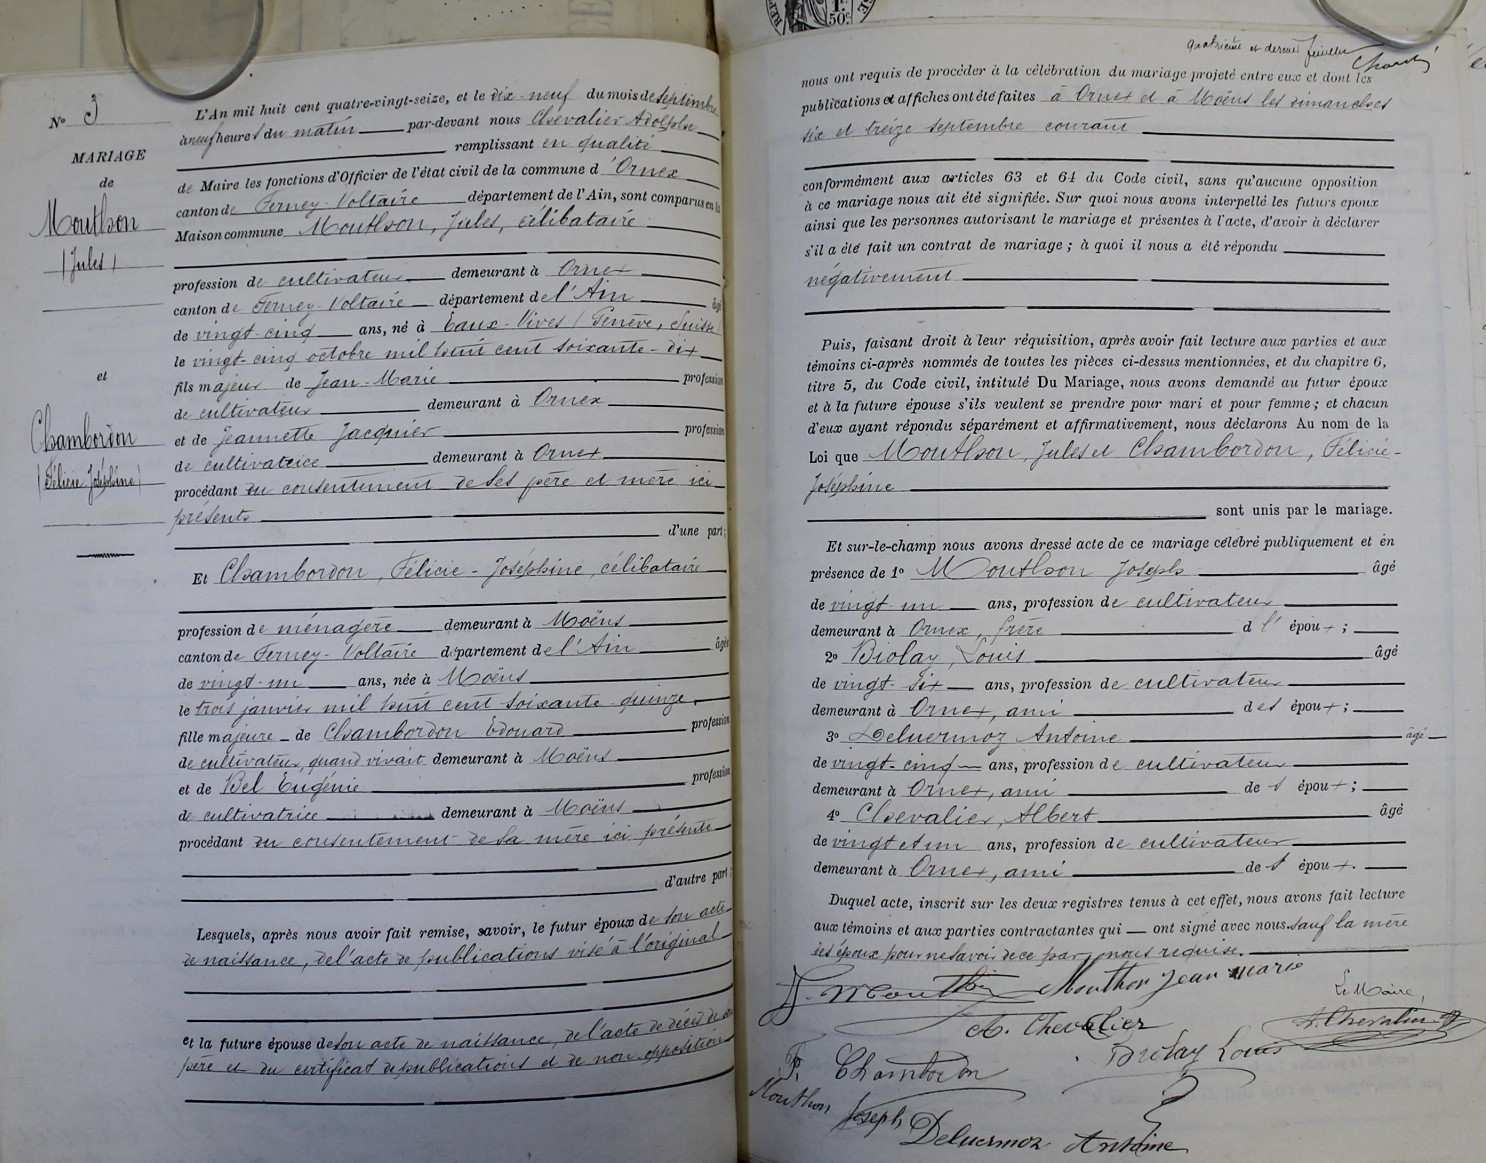 N° 3
MARIAGE
de
Mouthon
(Jules)
et
Chambordon
(Félicie Joséphine)
L'An mil huit cent quatre-vingt-seize, et le dix-neuf du mois de septembre
à neuf heures du matin par-devant nous Chevalier Adolphe
remplissant en qualité
de Maire les fonctions d'Officier de l'état civil de la commune d'Ornex
canton de Ferney-Voltaire département de l'Ain, sont comparus en la
Maison commune Mouthon, Jules, célibataire
profession de cultivateur demeurant à Ornex
canton de Ferney-Voltaire département de l'Ain âgé
de vingt-cinq ans, né à Eaux-Vives (Genève, Suisse)
le vingt-cinq octobre mil huit cent soixante-dix
fils majeur de Jean-Marie profession
de cultivateur demeurant à Ornex
et de Jeannette Jacquier profession
de cultivatrice demeurant à Ornex
procédant du consentement de ses père et mère ici
présents
d'une part;
Et Chambordon, Félicie-Joséphine, célibataire
profession de ménagère demeurant à Moëns
canton de Ferney-Voltaire département de l'Ain âgée
de vingt-un ans, née à Moëns
le trois janvier mil huit cent soixante-quinze,
fille majeure de Chambordon Edouard profession
de cultivateur, quand vivait demeurant à Moëns
et de Bel Eugénie profession
de cultivatrice demeurant à Moëns
procédant du consentement de sa mère ici présente
d'autre part;
Lesquels, après nous avoir fait remise, savoir, le futur époux de son acte
de naissance, de l'acte de publications visé à l'original
et la future épouse de son acte de naissance, de l'acte de décès de son
père et du certificat de publications et de non-opposition
RÉP
1F.
50c.
quatrième et dernier feuillet
nous ont requis de procéder à la célébration du mariage projeté entre eux et dont les
publications et affiches ont été faites à Ornex et à Moëns les dimanches
six et treize septembre courant
conformément aux articles 63 et 64 du Code civil, sans qu'aucune opposition
à ce mariage nous ait été signifiée. Sur quoi nous avons interpellé les futurs époux
ainsi que les personnes autorisant le mariage et présentes à l'acte, d'avoir à déclarer
s'il a été fait un contrat de mariage; à quoi il nous a été répondu
négativement
Puis, faisant droit à leur réquisition, après avoir fait lecture aux parties et aux
témoins ci-après nommés de toutes les pièces ci-dessus mentionnées, et du chapitre 6,
titre 5, du Code civil, intitulé Du Mariage, nous avons demandé au futur époux
et à la future épouse s'ils veulent se prendre pour mari et pour femme; et chacun
d'eux ayant répondu séparément et affirmativement, nous déclarons Au nom de la
Loi que Mouthon, Jules et Chambordon, Félicie-
Joséphine
sont unis par le mariage.
Et sur-le-champ nous avons dressé acte de ce mariage célébré publiquement et en
présence de 1° Mouthon Joseph âgé
de vingt-un ans, profession de cultivateur
demeurant à Ornex, frère d l' époux;
2° Biolay, Louis âgé
de vingt-six ans, profession de cultivateur
demeurant à Ornex, ami des époux;
3° Deluermoz Antoine âgé
de vingt-cinq ans, profession de cultivateur
demeurant à Ornex, ami des époux;
4° Chevalier, Albert âgé
de vingt et un ans, profession de cultivateur
demeurant à Ornex, ami des époux.
Duquel acte, inscrit sur les deux registres tenus à cet effet, nous avons fait lecture
aux témoins et aux parties contractantes qui ont signé avec nous sauf la mère
des époux pour ne savoir de ce par nous requise.
J. Mouthon Mouthon Jean Marie
Le Maire,
A. Chevalier A. Chevalier
F. Chambordon Biolay Louis
Mouthon Joseph
Deluermoz Antoine